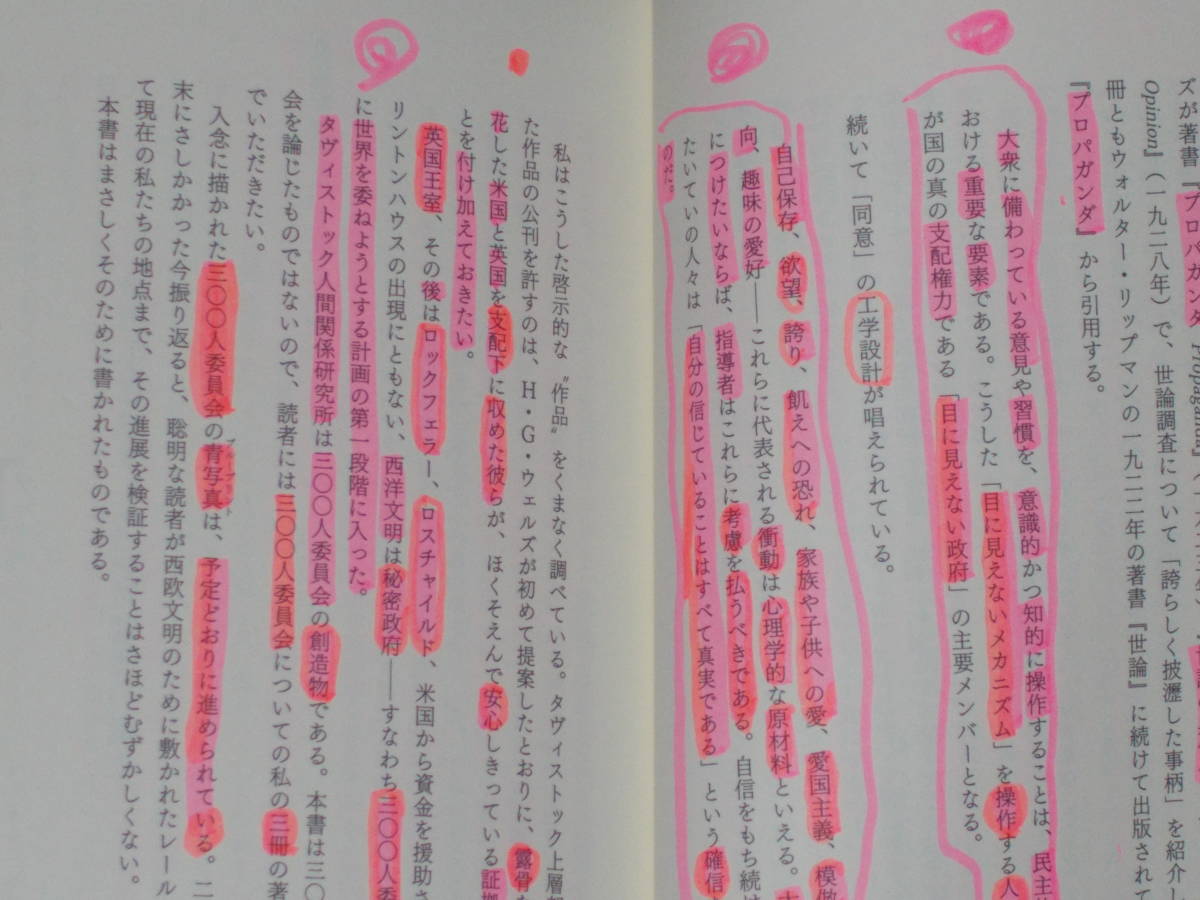 ズが著書『プロパガンダ Propaganda』
Opinion』（一九二八年）で、世論調査について「誇らしく披瀝した事柄」を紹介し
冊ともウォルター・リップマンの一九二二年の著書『世論』に続けて出版されて
『プロパガンダ』から引用する。
大衆に備わっている意見や習慣を、意識的かつ知的に操作することは、民主的
おける重要な要素である。こうした「目に見えないメカニズム」を操作する人
が国の真の支配権力である「目に見えない政府」の主要メンバーとなる。
続いて「同意」の工学設計が唱えられている。
自己保存、欲望、誇り、飢えへの恐れ、家族や子供への愛、愛国主義、模倣
向、趣味の愛好――これらに代表される衝動は心理学的な原材料といえる。
につけたいならば、指導者はこれらに考慮を払うべきである。自信をもち続け
たいていの人々は「自分の信じていることはすべて真実である」という確信
のだ。
私はこうした啓示的な〝作品〟をくまなく調べている。タヴィストック上層部
た作品の公刊を許すのは、H・G・ウェルズが初めて提案したとおりに、露骨な
花した米国と英国を支配下に収めた彼らが、ほくそえんで安心しきっている証拠
とを付け加えておきたい。
英国王室、その後はロックフェラー、ロスチャイルド、米国から資金を援助さ
リントンハウスの出現にともない、西洋文明は秘密政府――すなわち三〇〇人委
に世界を委ねようとする計画の第一段階に入った。
タヴィストック人間関係研究所は三〇〇人委員会の創造物である。本書は三〇
会を論じたものではないので、読者には三〇〇人委員会についての私の三冊の著
でいただきたい。
入念に描かれた三〇〇人委員会の青写真ブループリントは、予定どおりに進められている。二
末にさしかかった今振り返ると、聡明な読者が西欧文明のために敷かれたレール
て現在の私たちの地点まで、その進展を検証することはさほどむずかしくない。
本書はまさしくそのために書かれたものである。